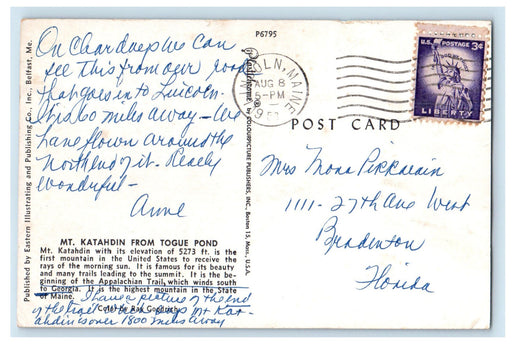 P6795
On clear days we can
see this from our road
that goes in to Lincoln.
It is 60 miles away — We
have flown around the
North end of it. Really
wonderful —
Anne
MT. KATAHDIN FROM TOGUE POND
Mt. Katahdin with its elevation of 5273 ft. is the
first mountain in the United States to receive the
rays of the morning sun. It is famous for its beauty
and many trails leading to the summit. It is the be-
ginning of the Appalachian Trail, which winds south
to Georgia. It is the highest mountain in the State
of Maine.
I have a picture of the end
of the trail which says Mt Kat-
ahdin is over 1800 miles away
Published by Eastern Illustrating and Publishing Co., Inc., Belfast, Me.
COLOURPICTURE PUBLISHERS, INC., Boston 15, Mass., U.S.A.
LINCOLN, MAINE
AUG 8
5-PM
U.S. POSTAGE 3¢
LIBERTY
POST CARD
Mrs Mona
1111-27th Ave West
Bradenton
Florida